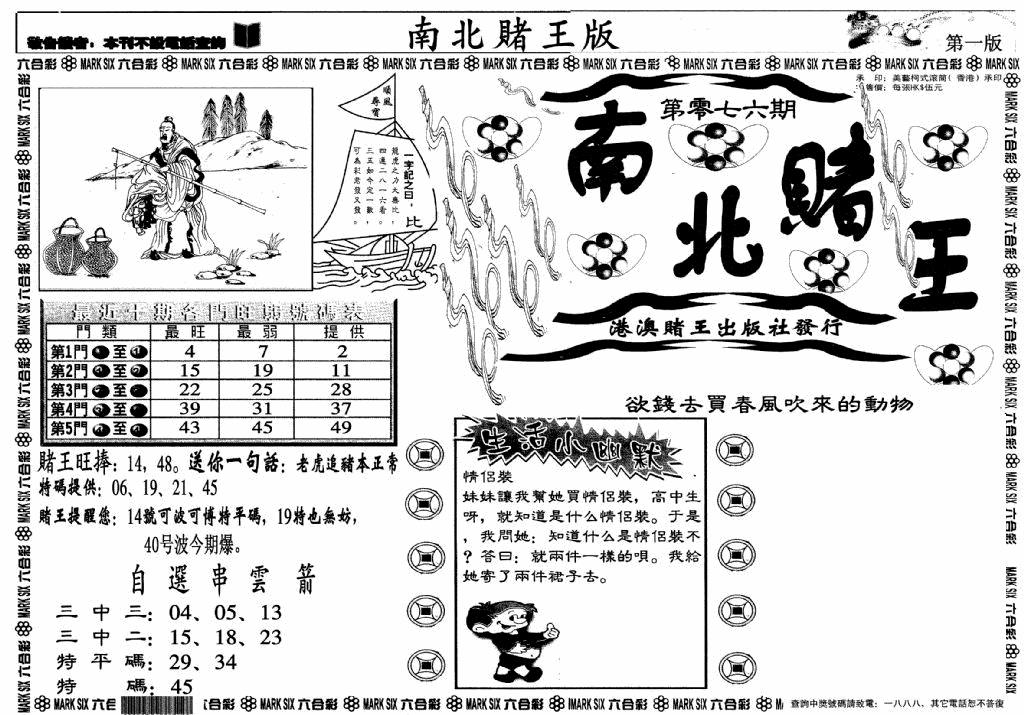 敬告讀者：本刊不設電話查詢
南北賭王版
第一版
六合彩 MARK SIX 六合彩 MARK SIX 六合彩 MARK SIX 六合彩 MARK SIX 六合彩 MARK SIX 六合彩 MARK SIX 六合彩 MARK SIX 六合彩 MARK SIX 六合彩 MARK SIX 六合彩 MARK SIX
承 印：美藝柯式滾筒（香港）承印
售價：每張HK$伍元
第零七六期
南北賭王
港澳賭王出版社發行
順風尋寶
一字記之曰：比
龍虎之力大無比，
四通二八一六看。
三五如今定一數，
可為彩君發又發。
最近十期各門旺弱號碼表
門 類 最 旺 最 弱 提 供
第1門 至 4 7 2
第2門 至 15 19 11
第3門 至 22 25 28
第4門 至 39 31 37
第5門 至 43 45 49
賭王旺捧：14，48。送你一句話：老虎追豬本正常
特碼提供：06、19、21、45
賭王提醒您：14號可波可博特平碼，19特也無妨，
40号波今期爆。
自選串雲箭
三中三：04、05、13
三中二：15、18、23
特平碼：29、34
特 碼：45
欲錢去買春風吹來的動物
生活小幽默
情侶裝
妹妹讓我幫她買情侶裝，高中生
呀，就知道是什么情侶裝。于是
，我問她：知道什么是情侶裝不
？答曰：就兩件一樣的唄。我給
她寄了兩件裙子去。
MARK SIX 六合彩 MARK SIX 六合彩 六合彩 MARK SIX 六合彩 MARK SIX 六合彩 MARK SIX 六合彩 MARK SIX 六合彩 MARK SIX 六合彩
查詢中獎號碼請致電：一八八八、其它電話恕不答復